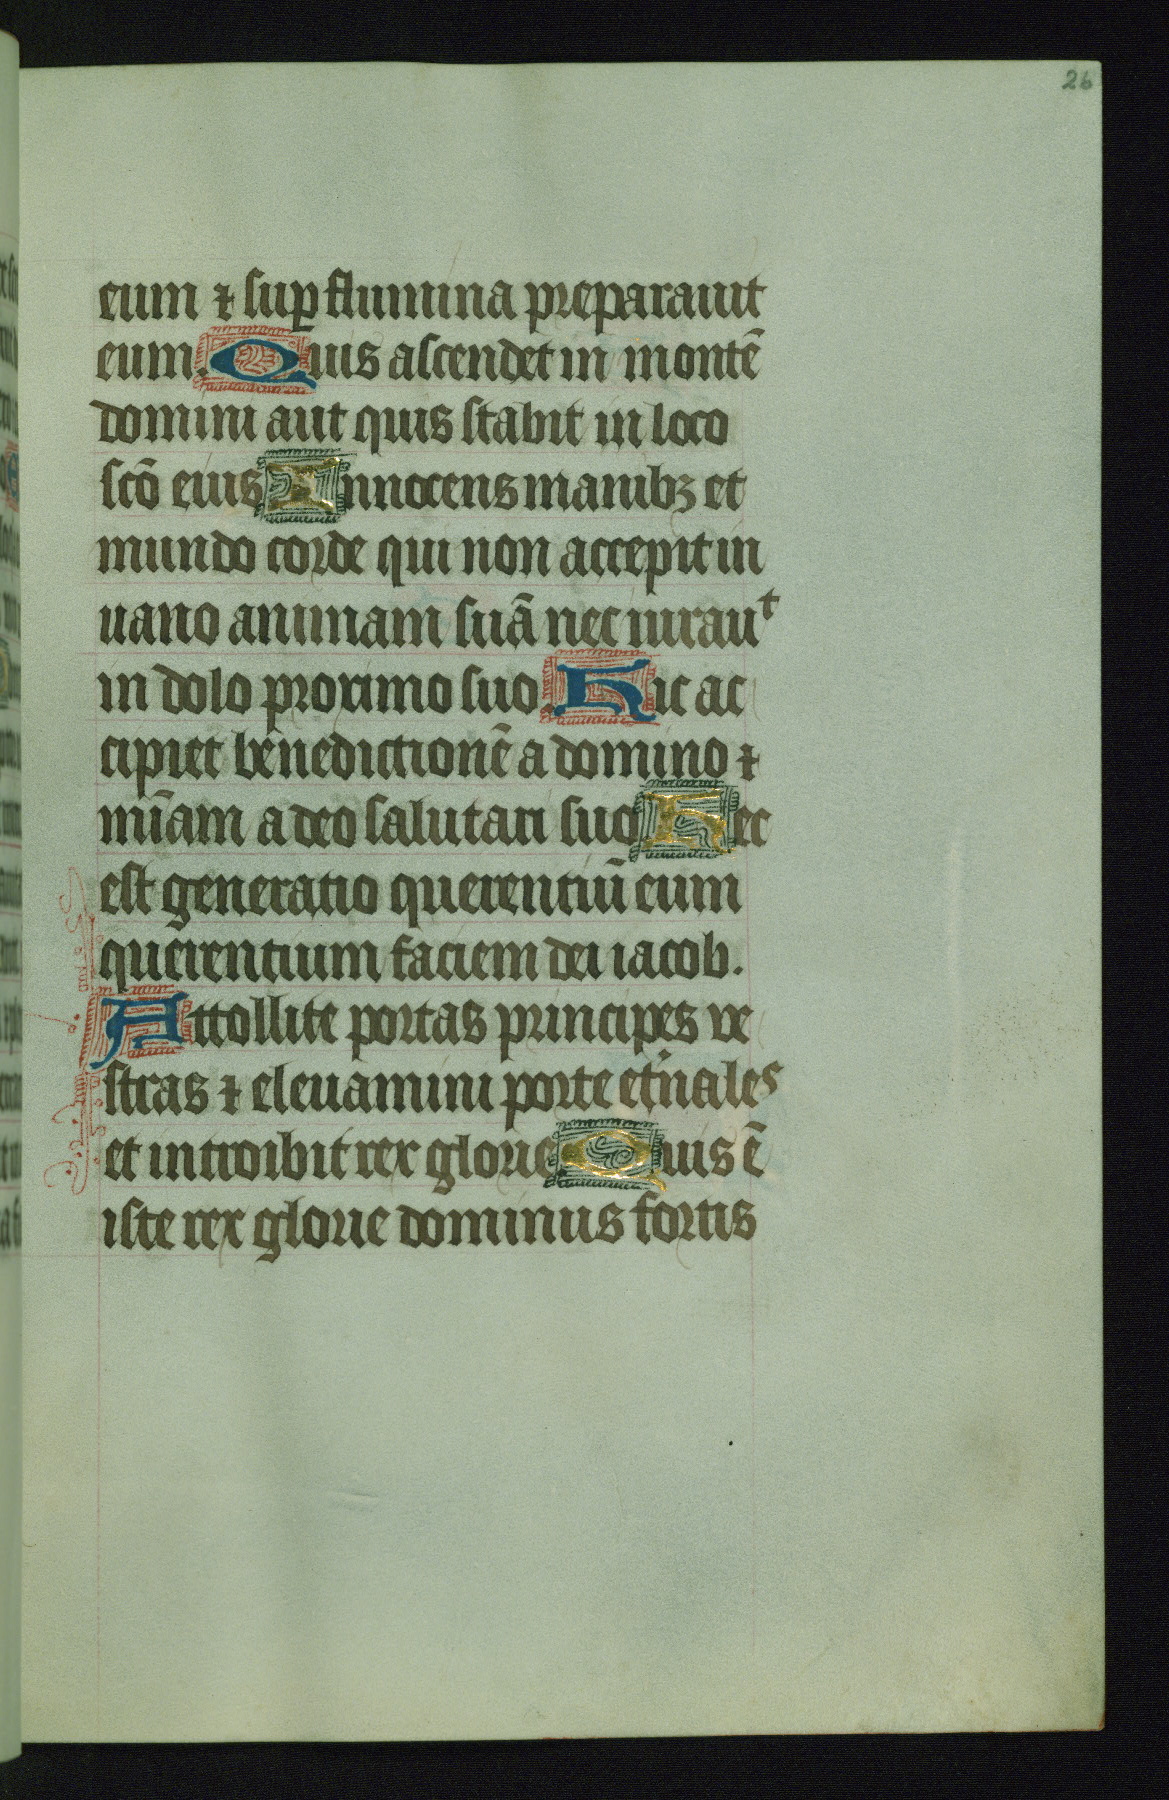 26
eum ⁊ suꝑ flumina preparauit
eum. Quis ascendet in montē
domini aut quis stabit in loco
scō eius Innocens manibꝫ et
mundo corde qui non accepit in
uano animam suā nec iurauᵗ
in dolo proximo suo. Hic ac
cipiet benedictionē a domino ⁊
mīam a deo salutari suo Hec
est generatio querentiū eum
querentium faciem dei iacob.
Attollite portas principes ve
stras ⁊ eleuamini porte et̾nales
et introibit rex glorie Quis ē
iste rex glorie dominus fortis